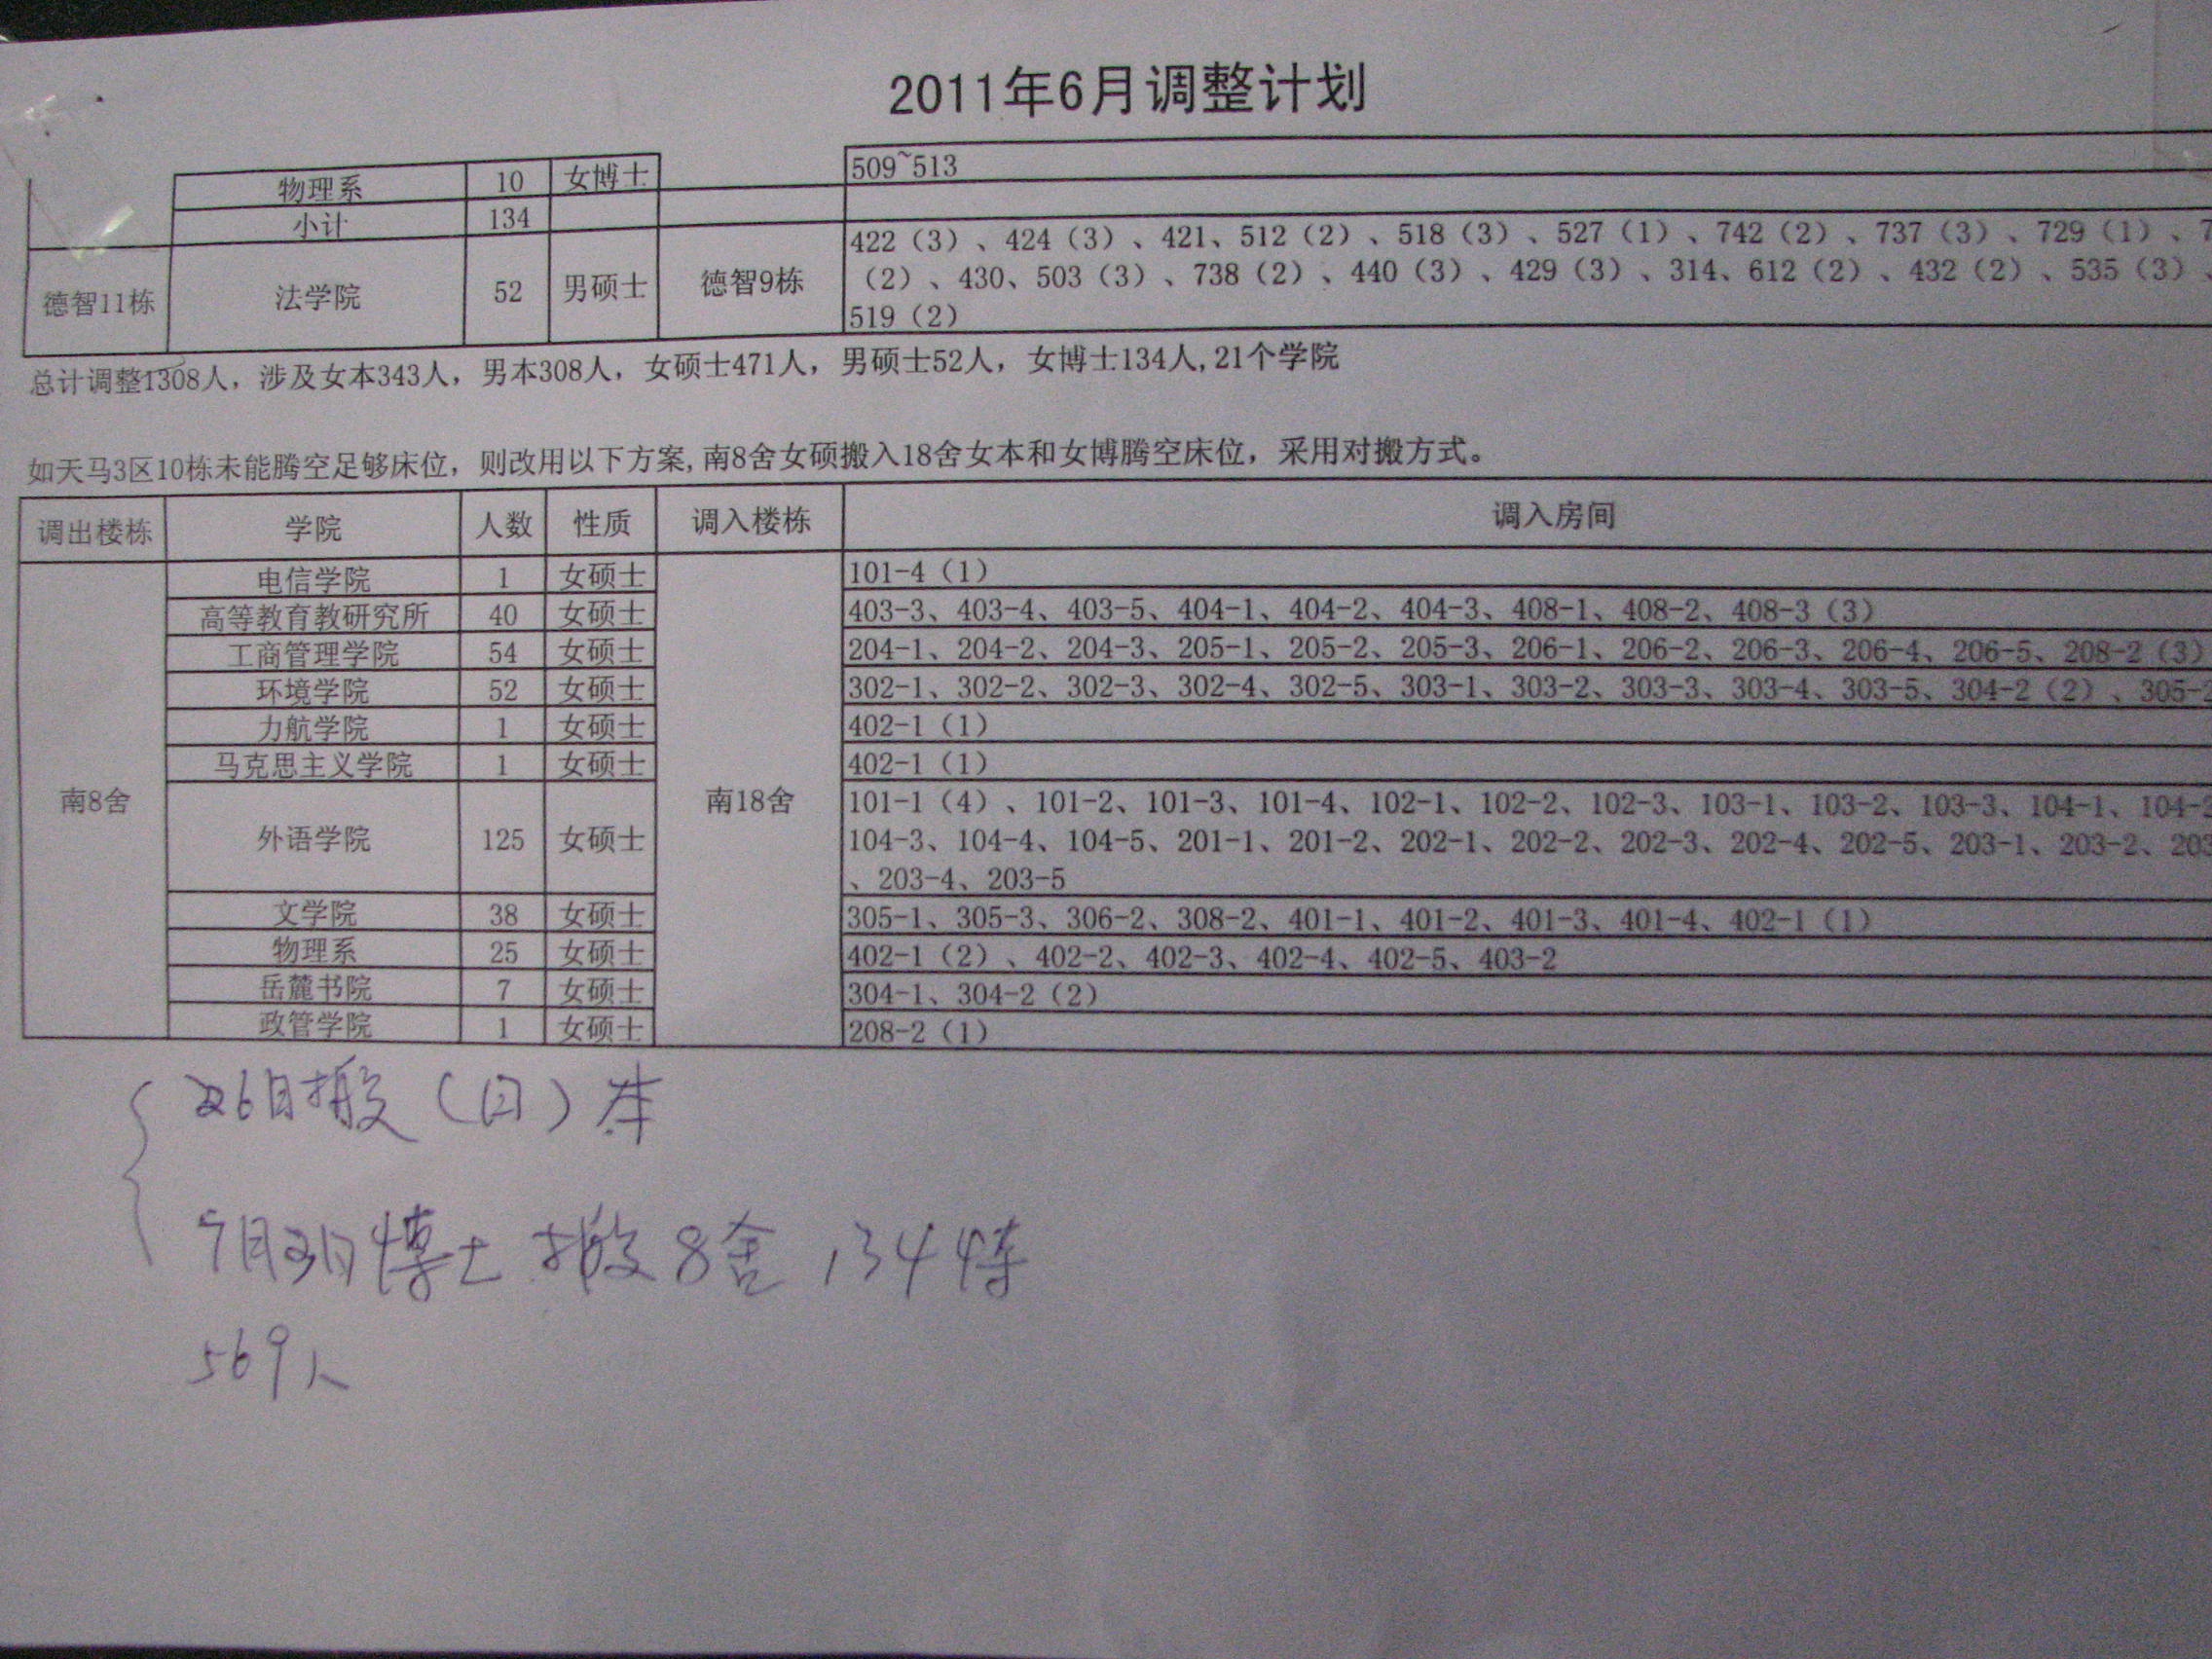 2011年6月调整计划
物理系 10 女博士 509~513
小计 134
德智11栋 法学院 52 男硕士 德智9栋 422（3）、424（3）、421、512（2）、518（3）、527（1）、742（2）、737（3）、729（1）、7
（2）、430、503（3）、738（2）、440（3）、429（3）、314、612（2）、432（2）、535（3）、
519（2）
总计调整1308人，涉及女本343人，男本308人，女硕士471人，男硕士52人，女博士134人,21个学院
如天马3区10栋未能腾空足够床位，则改用以下方案,南8舍女硕搬入18舍女本和女博腾空床位，采用对搬方式。
调出楼栋 学院 人数 性质 调入楼栋 调入房间
南8舍 南18舍
电信学院 1 女硕士 101-4（1）
高等教育教研究所 40 女硕士 403-3、403-4、403-5、404-1、404-2、404-3、408-1、408-2、408-3（3）
工商管理学院 54 女硕士 204-1、204-2、204-3、205-1、205-2、205-3、206-1、206-2、206-3、206-4、206-5、208-2（3）
环境学院 52 女硕士 302-1、302-2、302-3、302-4、302-5、303-1、303-2、303-3、303-4、303-5、304-2（2）、305-
力航学院 1 女硕士 402-1（1）
马克思主义学院 1 女硕士 402-1（1）
外语学院 125 女硕士 101-1（4）、101-2、101-3、101-4、102-1、102-2、102-3、103-1、103-2、103-3、104-1、104-2
104-3、104-4、104-5、201-1、201-2、202-1、202-2、202-3、202-4、202-5、203-1、203-2、203
、203-4、203-5
文学院 38 女硕士 305-1、305-3、306-2、308-2、401-1、401-2、401-3、401-4、402-1（1）
物理系 25 女硕士 402-1（2）、402-2、402-3、402-4、402-5、403-2
岳麓书院 7 女硕士 304-1、304-2（2）
政管学院 1 女硕士 208-2（1）
26日搬（日）本
7月3日博士搬8舍 134
569人